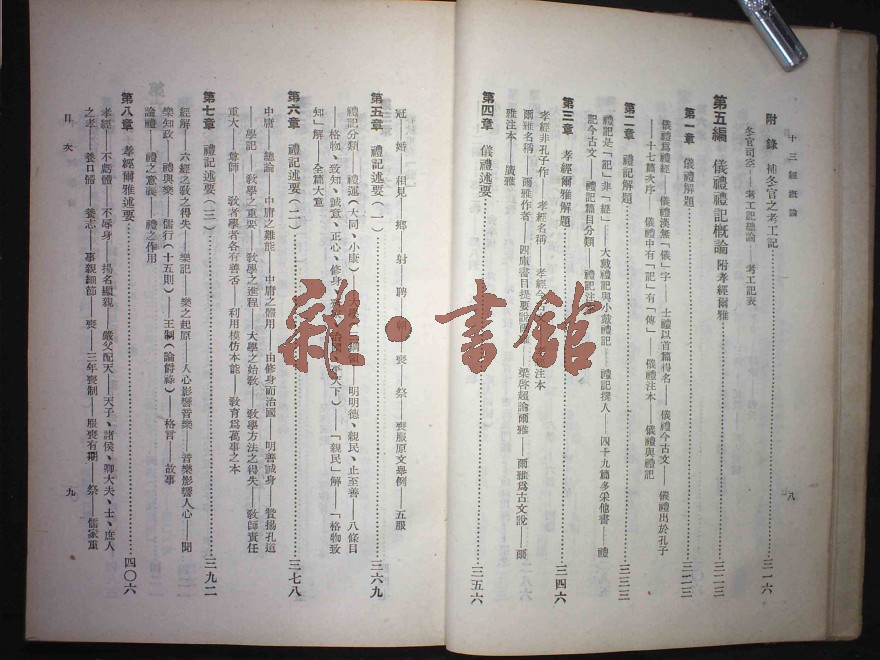 十三經概論
八
附錄 補冬官之考工記……三一六
冬官司空——考工記總論——考工記表
第五編 儀禮禮記概論 附孝經爾雅……三二三
第一章 儀禮解題……三二三
儀禮爲禮經——儀禮漢無「儀」字——士禮以首篇得名——儀禮今古文——儀禮出於孔子
——十七篇次序——儀禮中有「記」有「傳」——儀禮注本——儀禮與禮記
第二章 禮記解題……三三三
禮記是「記」非「經」——大戴禮記與小戴禮記——禮記撰人——四十九篇多采他書——禮
記今古文——禮記篇目分類——禮記注
第三章 孝經爾雅解題……三四六
孝經非孔子作——孝經名稱——孝經今 注本
爾雅名稱——爾雅作者——四庫書目提要 梁啓超論爾雅——爾雅爲古文說——爾
雅注本——廣雅
第四章 儀禮述要……三五六
冠——婚——相見——鄉——射——聘 喪——祭——喪服原文舉例——五服
第五章 禮記述要(一)……三六九
禮記分類——禮運(大同、小康) 明明德、親民、止至善——八條目
——格物、致知、誠意、正心、修身、 天下)——「親民」解——「格物致
知」解——全篇大意
第六章 禮記述要(二)……三七八
中庸——總論——中庸之難能——中庸之體用——由修身而治國——明善誠身——贊揚孔道
——學記——敎學之重要——敎學之進程——大學之始敎——敎學方法之得失——敎師責任
重大——尊師——敎者學者各有善否——利用模仿本能——敎育爲萬事之本
第七章 禮記述要(三)……三九二
經解——六經之敎之得失——樂記——樂之起原——人心影響音樂——音樂影響人心——聞
樂知政——禮與樂——儒行(十五則)——王制(論爵祿)——格言——故事
論禮——禮之意義——禮之作用
第八章 孝經爾雅述要……四〇六
孝經——不虧體——不辱身——揚名顯親——嚴父配天——天子、諸侯、卿大夫、士、庶人
之孝——養口體——養志——事親細節——喪——三年喪制——服喪有期——祭——儒家重
目次
九
雜·書館